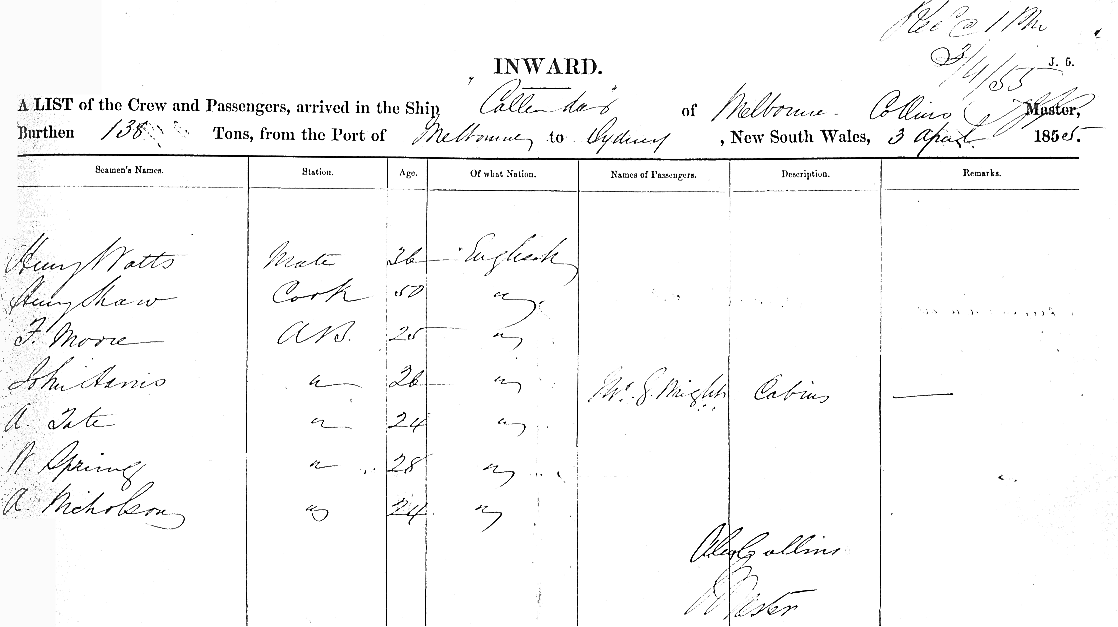 1 PM
3/4/55
J. 6.
INWARD.
A LIST of the Crew and Passengers, arrived in the Ship "Callendar" of Melbourne Collins Master,
Burthen 138 Tons, from the Port of Melbourne to Sydney, New South Wales, 3 April 1855.
Seamen's Names. Station. Age. Of what Nation. Names of Passengers. Description. Remarks.
Henry Watts Mate 36 English
Henry Shaw Cook 50 "
F. Moore AB. 25 "
John Harris " 26 " Mr. G. Wright Cabin —
A. Tate " 24 "
W. Spring " 28 "
A. Nicholson " 24 "
Alex Collins
Master